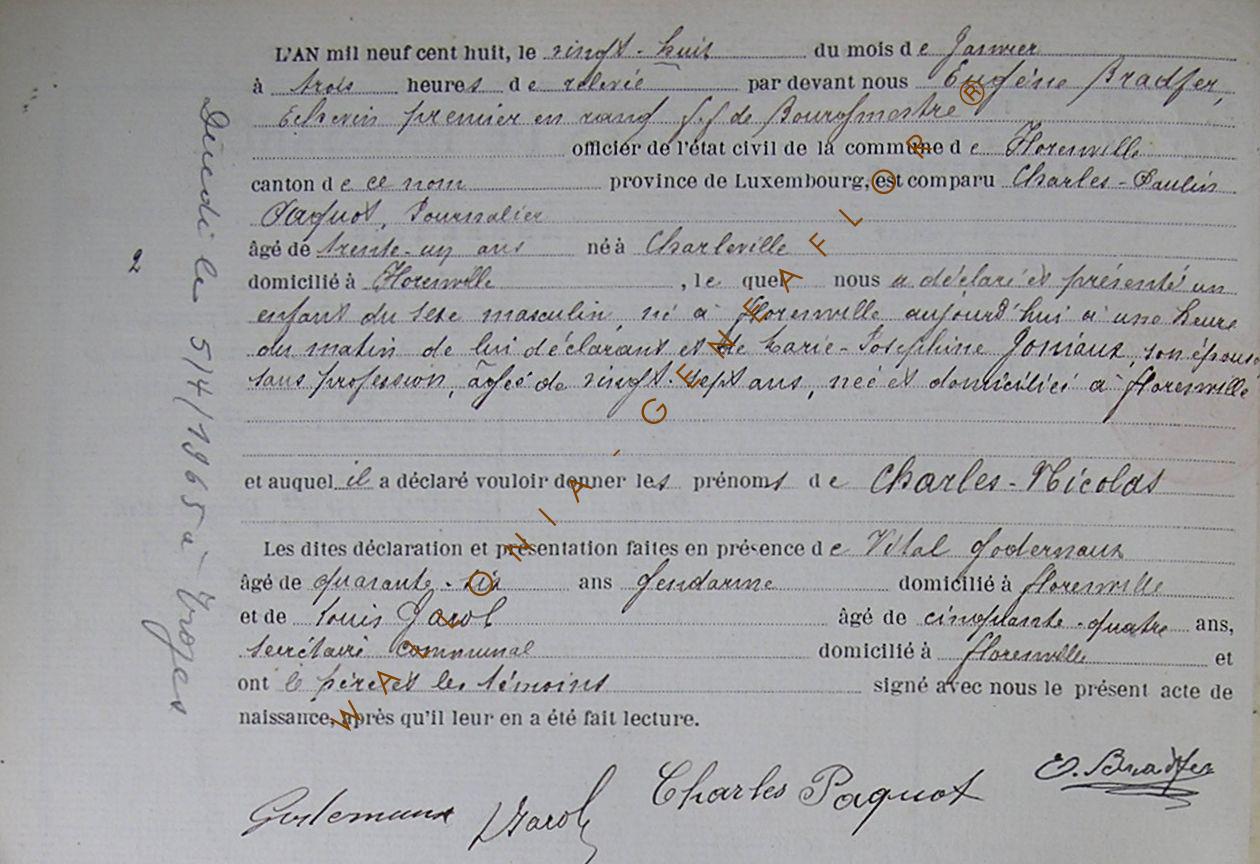 L'AN mil neuf cent huit, le vingt-huit du mois de Janvier
à trois heures de relevée par devant nous Eugène Bradfer,
Echevin premier en rang ff de Bourgmestre
officier de l'état civil de la commune de Florenville
canton de ce nom province de Luxembourg, est comparu Charles-Paulin
Paquot, Journalier
âgé de trente-un ans né à Charleville
domicilié à Florenville, le quel nous a déclaré et présenté un
enfant du sexe masculin, né à Florenville aujourd'hui à une heure
du matin de lui déclarant et de Marie-Joséphine Joniaux, son épouse,
sans profession, âgée de vingt-sept ans, née et domiciliée à Florenville
et auquel il a déclaré vouloir donner les prénoms de Charles-Nicolas
Les dites déclaration et présentation faites en présence de Vital Godernaux
âgé de quarante-six ans Gendarme domicilié à Florenville
et de Louis Jarol âgé de cinquante-quatre ans,
secrétaire communal domicilié à Florenville et
ont le père et les témoins signé avec nous le présent acte de
naissance, après qu'il leur en a été fait lecture.
2
Décédé le 5/4/1965 à Troyes
Charles Paquot
E. Bradfer
WALLONIA-GENEAFLOR®